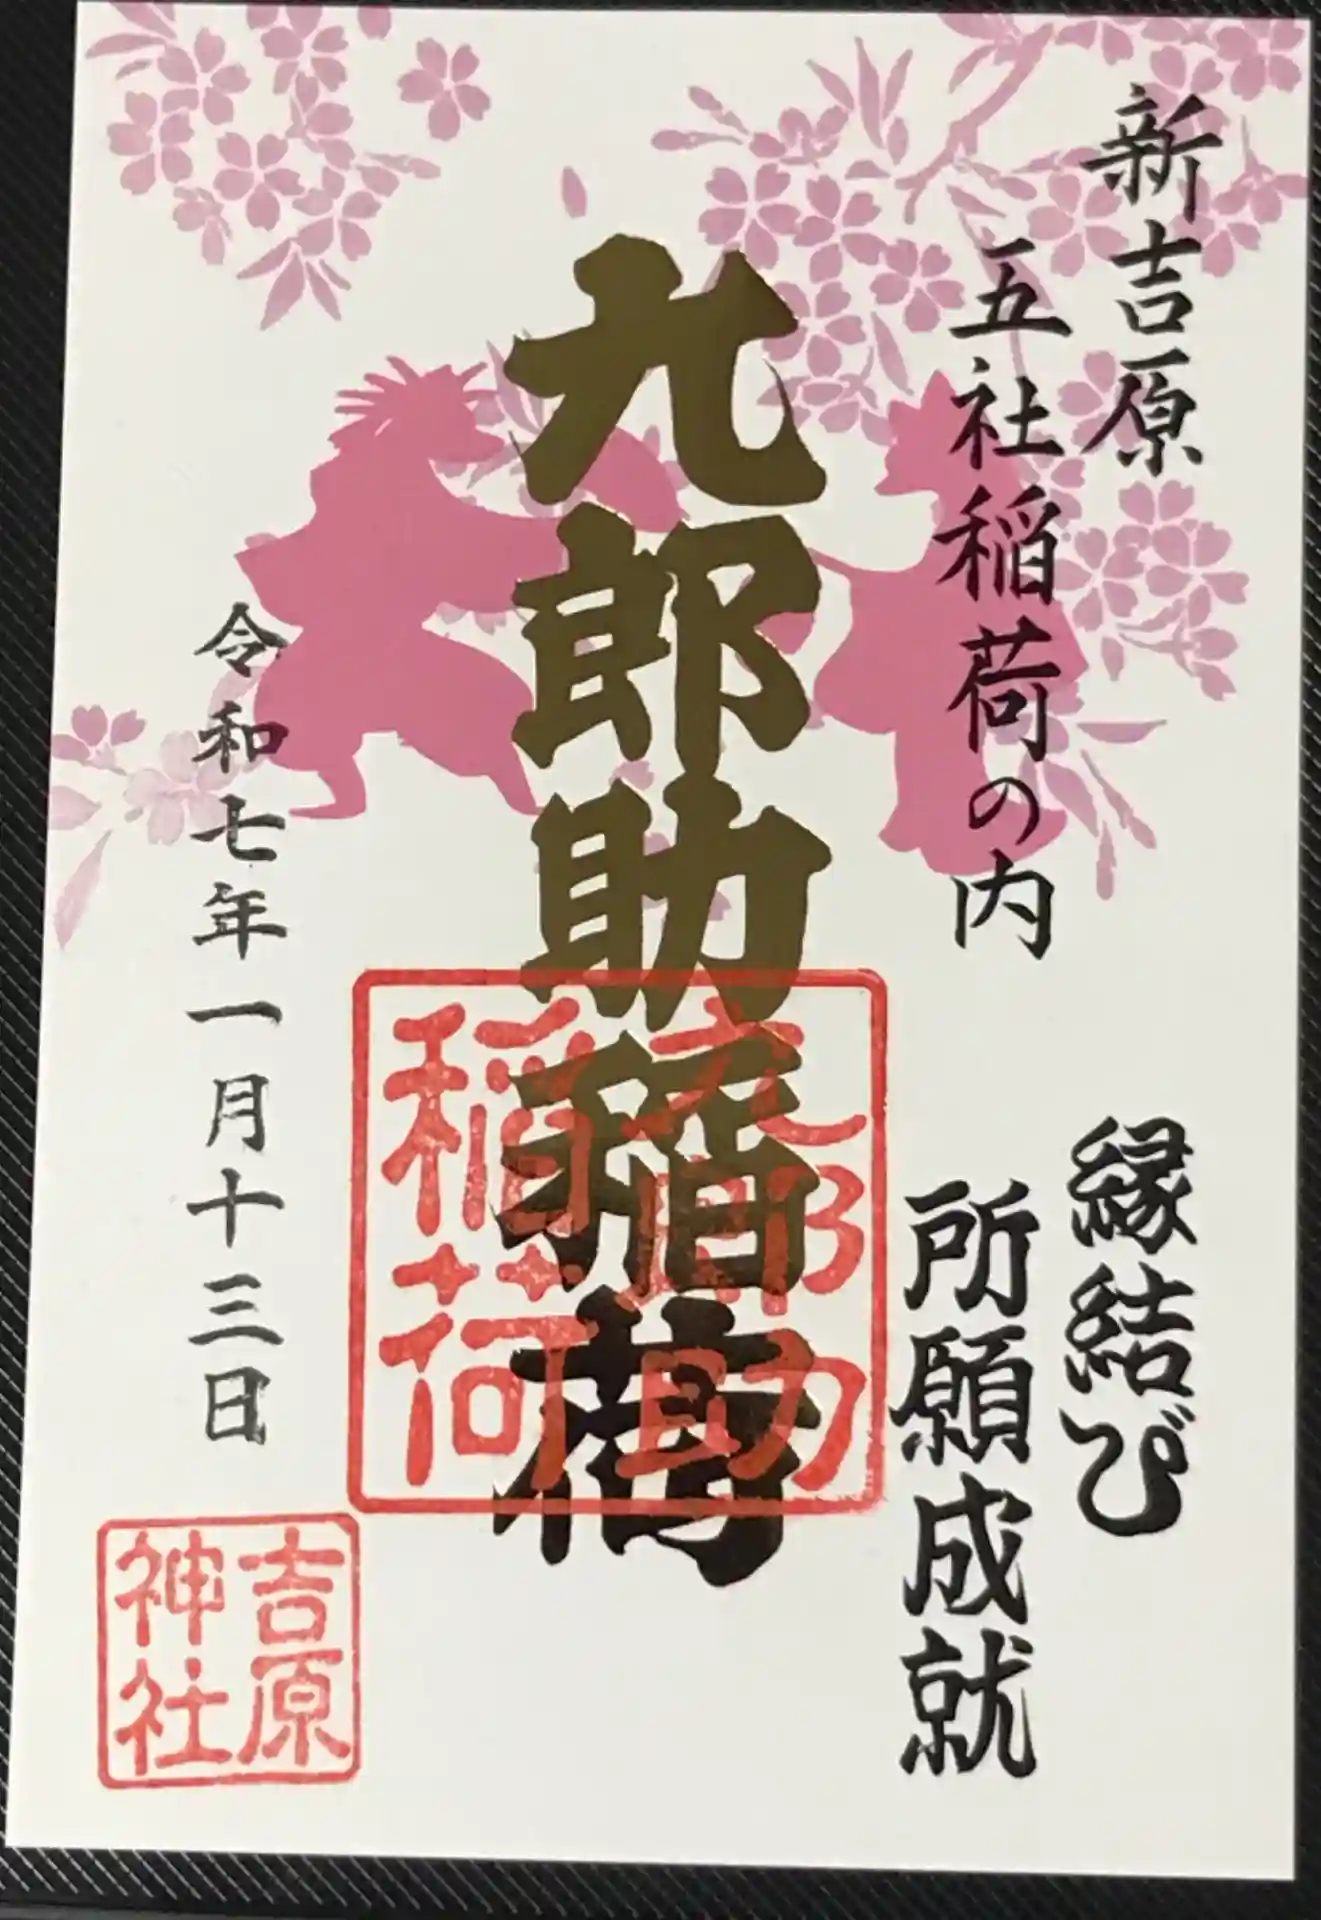 新吉原
五社稲荷の内
縁結び
所願成就
九郎助稲荷
九郎助
稲荷
令和七年一月十三日
吉原
神社